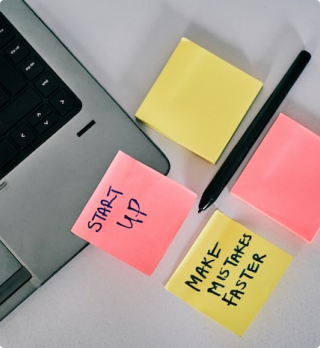 START
UP
MAKE
MISTAKES
FASTER